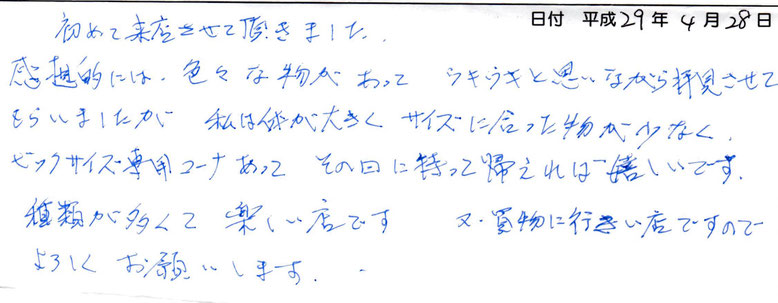 日付 平成29年4月28日
初めて来店させて頂きました.
感想的には、色々な物があって ウキウキと思いながら拝見させて
もらいましたが 私は体が大きく サイズに合った物が少なく、
ビックサイズ専用コーナあって その日に持って帰えれば嬉しいです.
種類が多くて 楽しい店です 又、買物に行きい店ですので
よろしくお願いします.